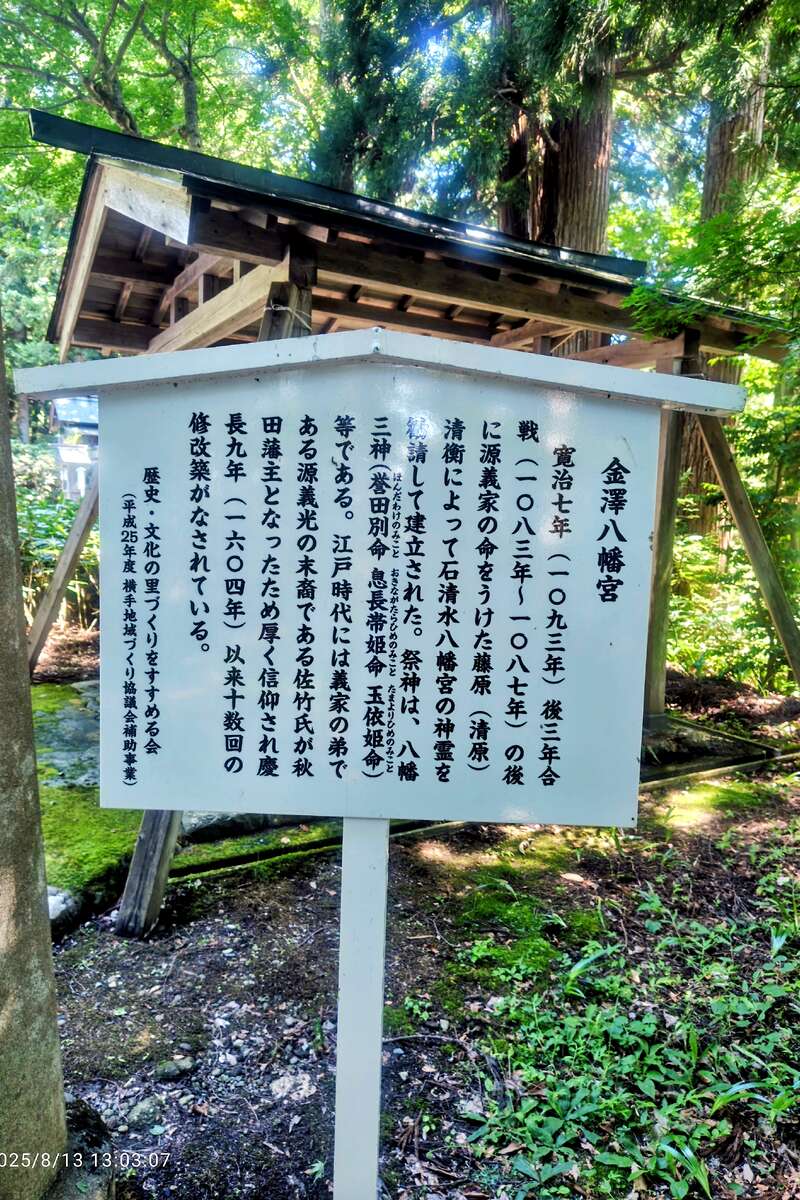 金澤八幡宮
寛治七年（一〇九三年）後三年合
戦（一〇八三年～一〇八七年）の後
に源義家の命をうけた藤原（清原）
清衡によって石清水八幡宮の神霊を
勧請して建立された。祭神は、八幡
三神（誉田別命 息長帯姫命 玉依姫命）
ほんだわけのみこと おきながたらひめのみこと たまよりひめのみこと
等である。江戸時代には義家の弟で
ある源義光の末裔である佐竹氏が秋
田藩主となったため厚く信仰され慶
長九年（一六〇四年）以来十数回の
修改築がなされている。
歴史・文化の里づくりをすすめる会
（平成25年度 横手地域づくり協議会補助事業）
2025/8/13 13:03:07